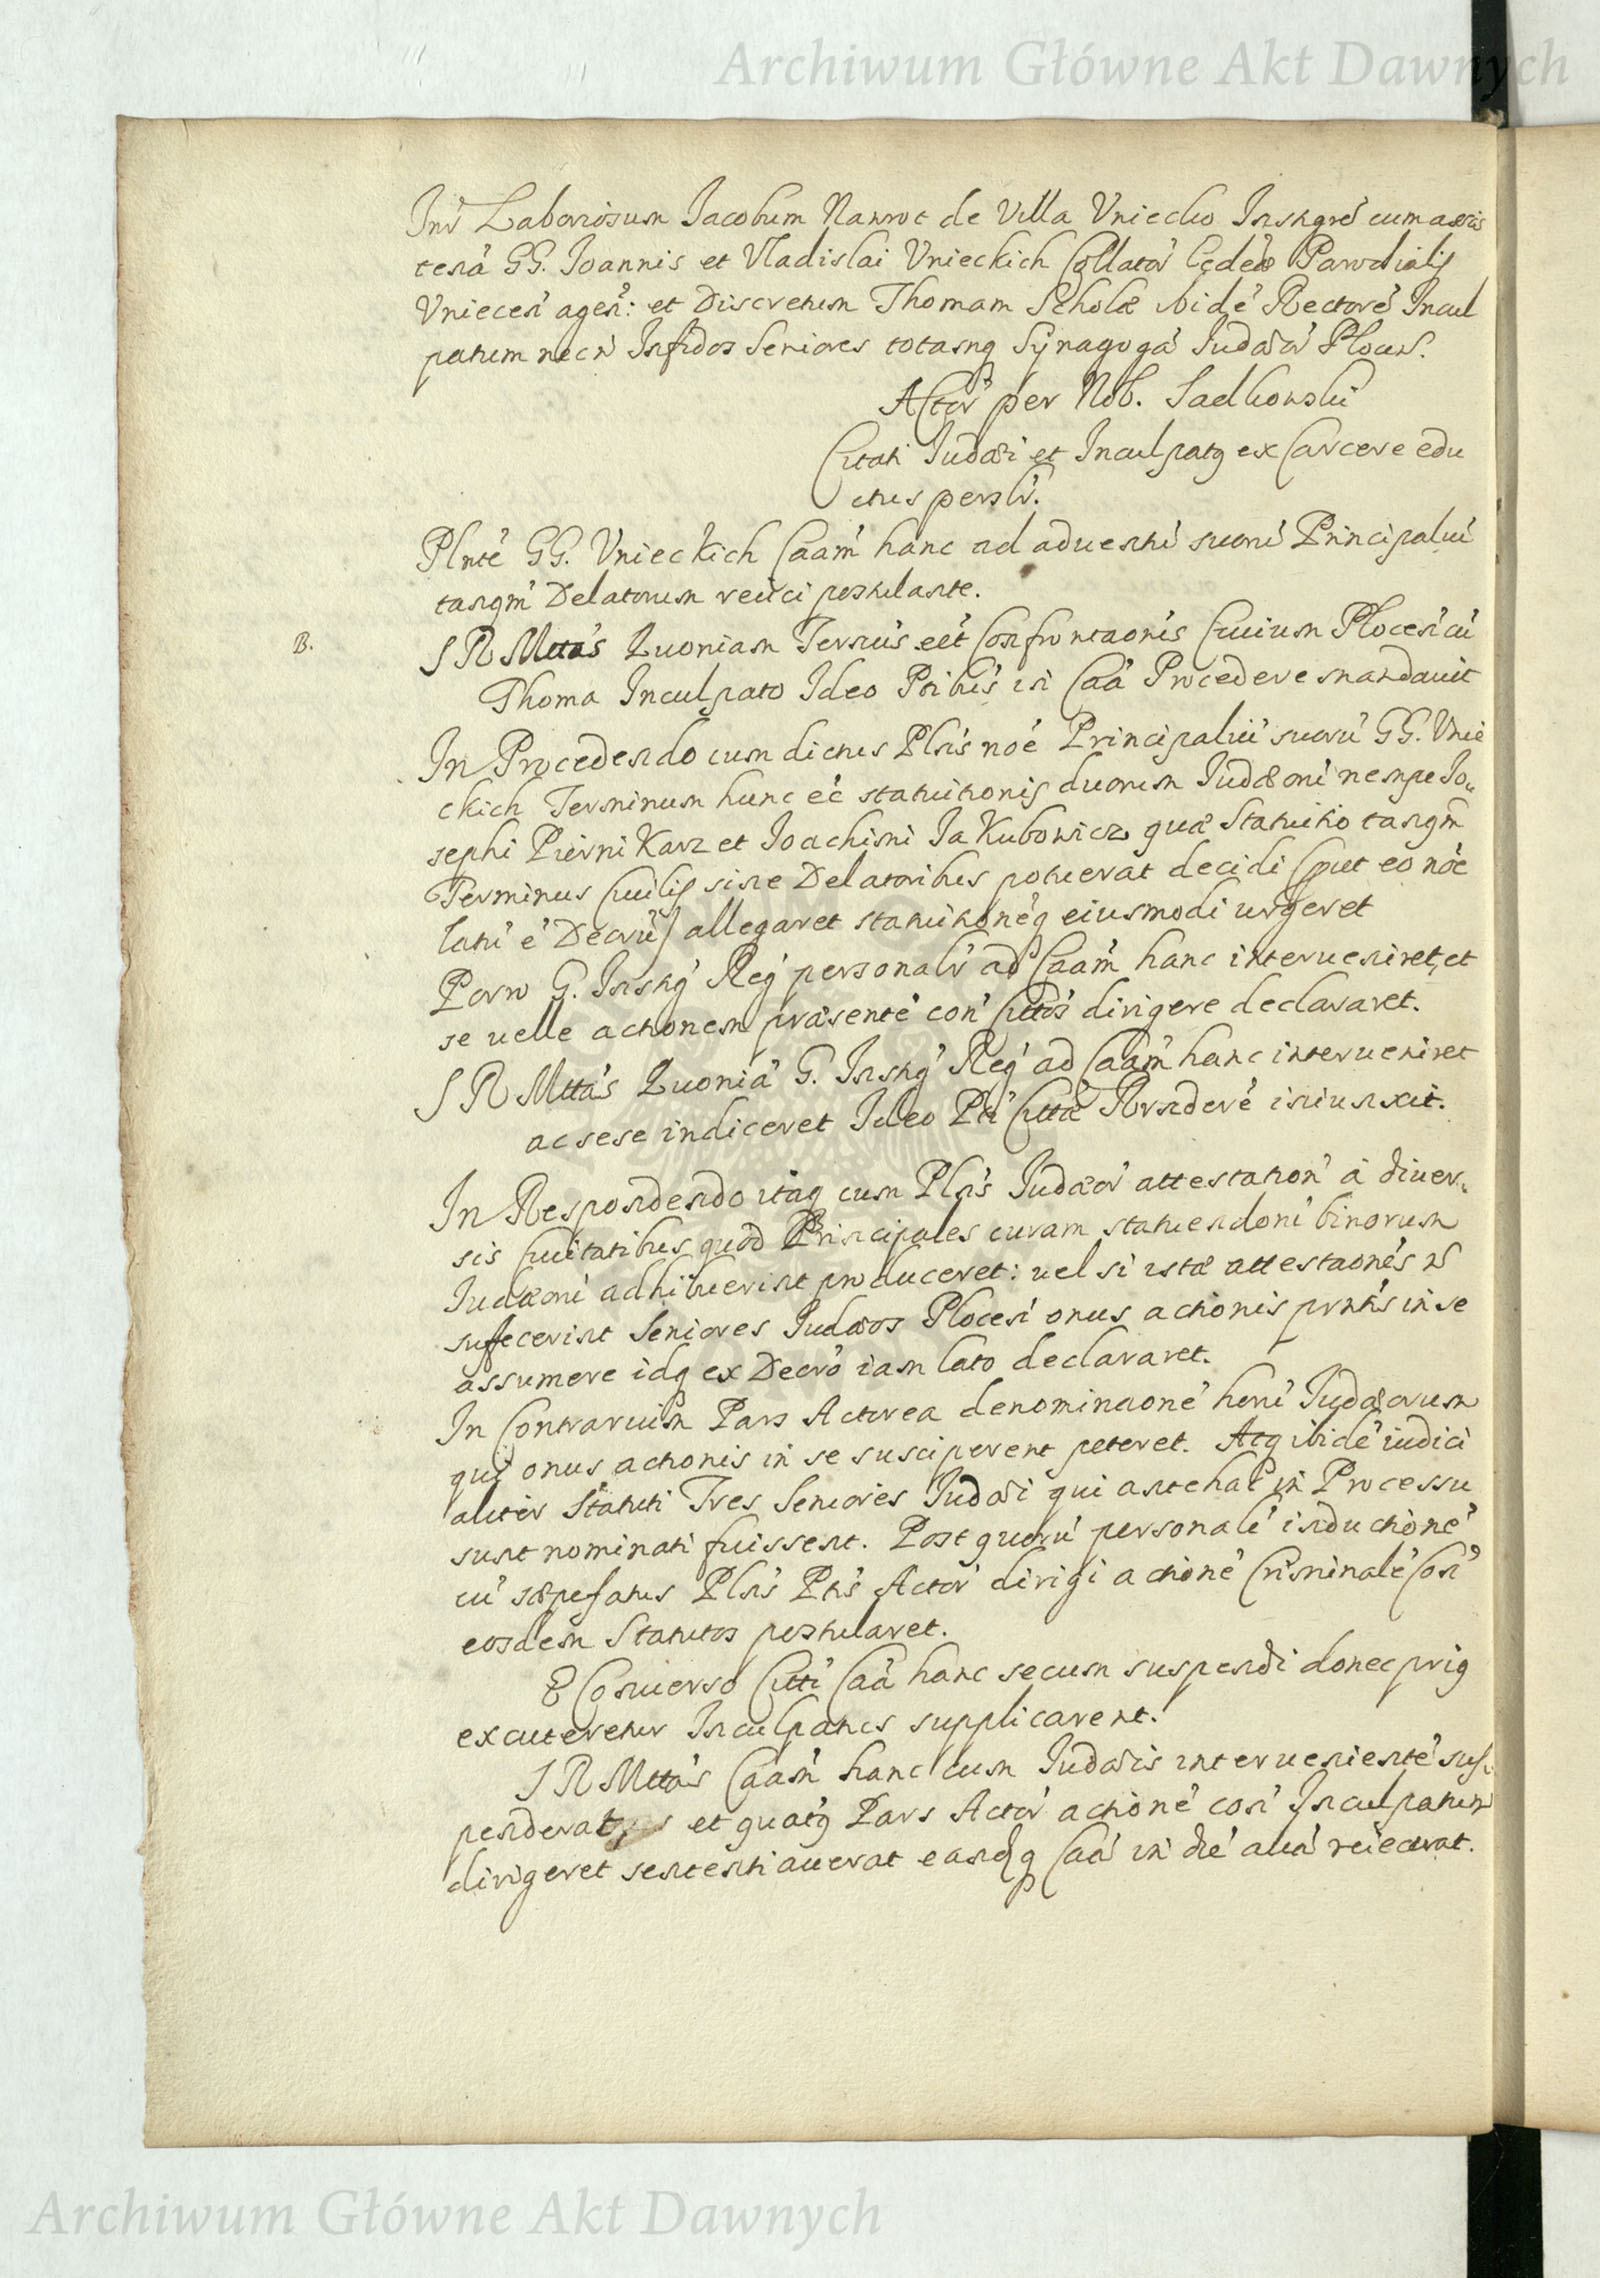 Archiwum Główne Akt Dawnych
Inr Laboriosum Jacobum Nawrot de Villa Vniecko Instigre cum assis
tena GG. Joannis et Vladislai Vnieckich Collator Parochialis
Vniecen agen: et Discretum Thomam Scholæ ibide Rectore Incul
patum necn Infidos Seniores totamq Synagoga Judæor Plocen.
Actor per Nob. Sadkowski
Citati Judæi et Inculpatq ex Carcere edu
ctus perslr.
Plnte GG. Vnieckich Caam hanc ad aduentu suoru Principaliu
tanqm Delatorum reiici postulante.
B.
S R Mttas Quoniam Terius eet Confrontaonis Ciuium Plocen cu
Thoma Inculpato Ideo Ptibus in Caa Procedere mandauit
In Procedendo cum dictus Plns noe Principaliu suoru GG. Vnie
ckich Terminum hunc ee statuitionis duorum Judæoru nempe Jo
sephi Piernikarz et Joachimi Jakubowicz quæ Statuitio tanqm
Terminus Ciuilis sine Delatoribus potuerat decidi Cput eo noe
latu e Decru) allegaret statuitioneq eiusmodi urgeret
Porro G. Instig Reg personalr ad Caam hanc interueniret, et
se uelle actionem præsente con Cittos dirigere declararet.
S R Mttas Quonia G. Instig Reg ad Caam hanc interueniret
ac sese indiceret Ideo Pti Cittæ Rndere iniunxit.
In Respondendo itaq cum Plns Judæor attestation a diuer
sis Ciuitatibus quod Principales curam statuendoru binorum
Judæoru adhibuerint produceret: uel si istæ attestaones n
suffecerint Seniores Judæos Plocen onus actionis prntis in se
assumere idq ex Decro iam lato declararet.
In Contrarium Pars Actorea denominaone horu Judæorum
qui onus actionis in se susciperent peteret. Atq ibide iudici
aliter Statuti Tres Seniores Judæi qui antehac in Processu
sunt nominati fuissent. Post quoru personale inductione
cu sæpefatus Plns Ptis Actor dirigi actione Criminale Con
eosdem Statutos postularet.
E Conuerso Citti Caa hanc secum suspendi donec priq
excuteretur Inculpatus supplicarent.
S R Mttas Caam hanc cum Judæis interueniente sus
penderat et quatq Pars Actor actione con Inculpatum
dirigeret sententiauerat eandq Caa in die alia reiecerat.
Archiwum Główne Akt Dawnych